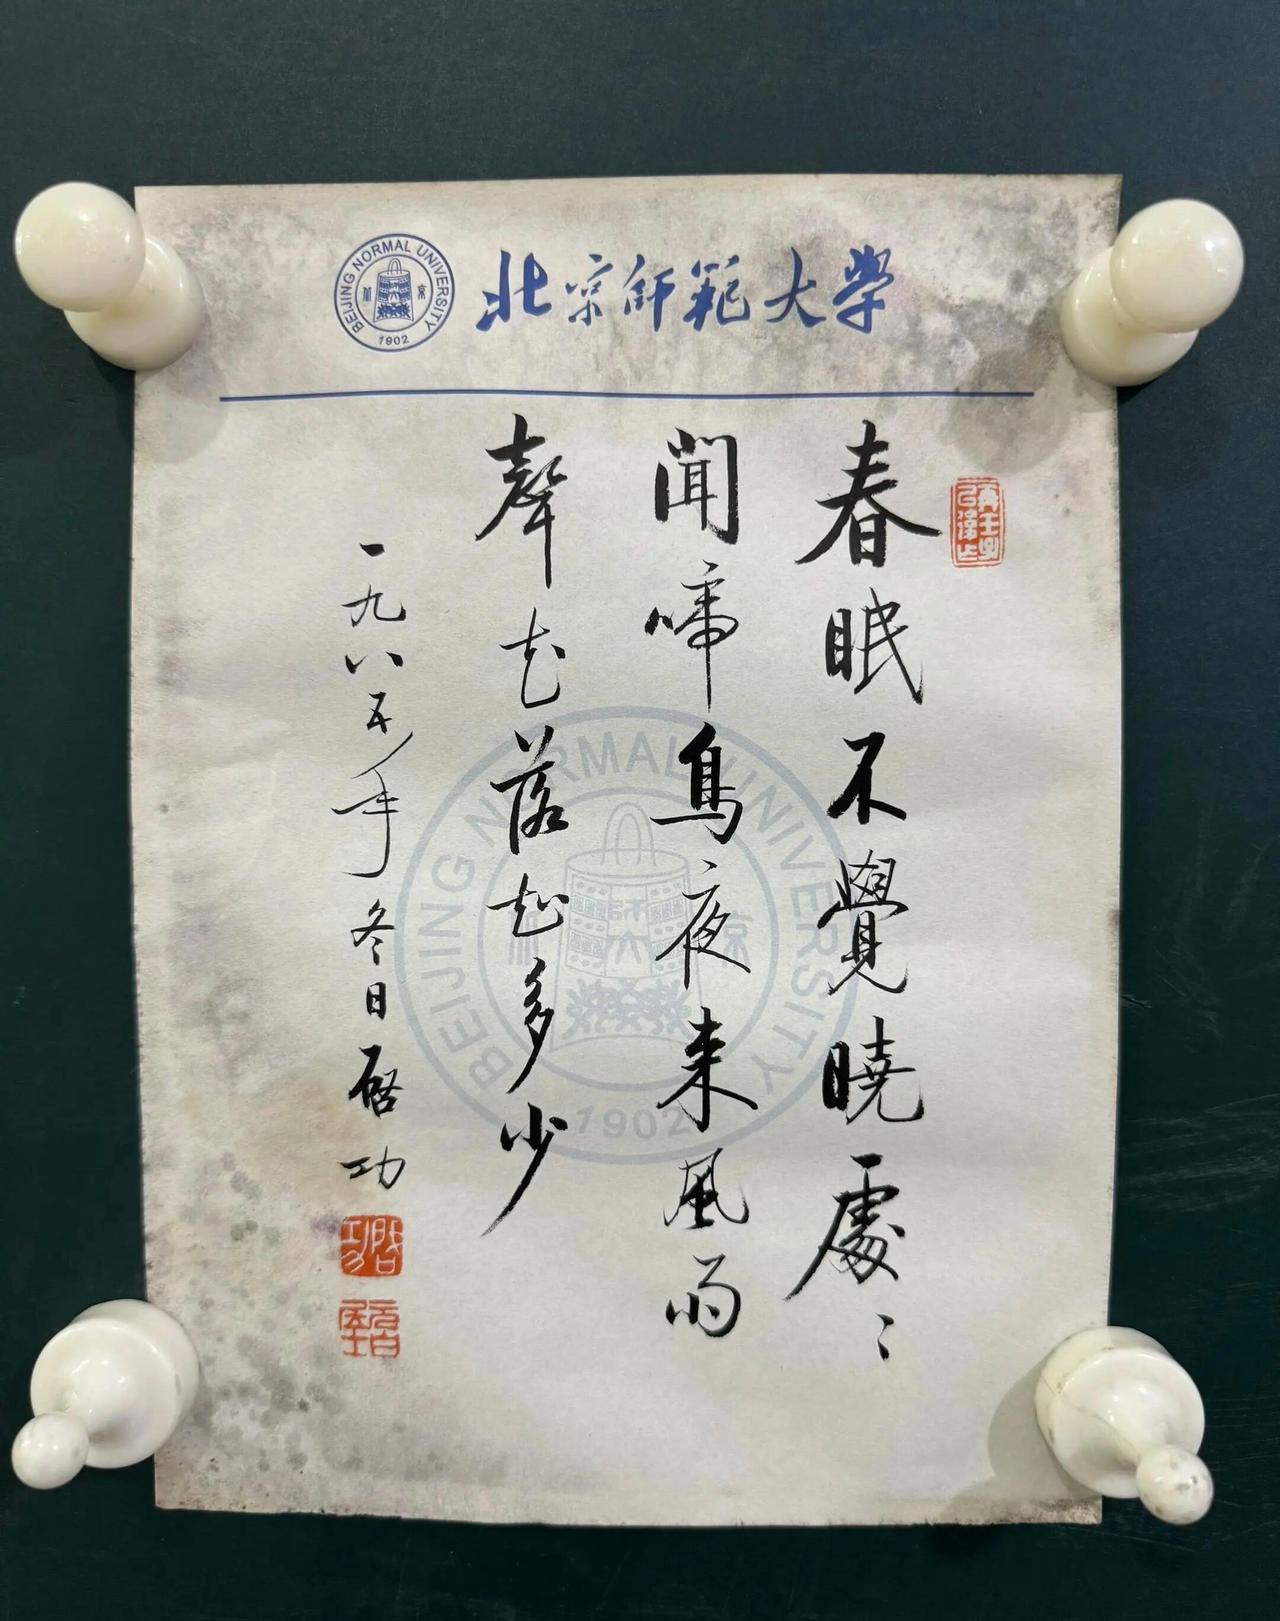 BEIJING NORMAL UNIVERSITY
1902
北京師範大學
春眠不覺曉處〻
聞啼鳥夜来風雨
聲花落知多少
一九八五年冬日啓功
啓功
BEIJING NORMAL UNIVERSITY
師大
北京
1902